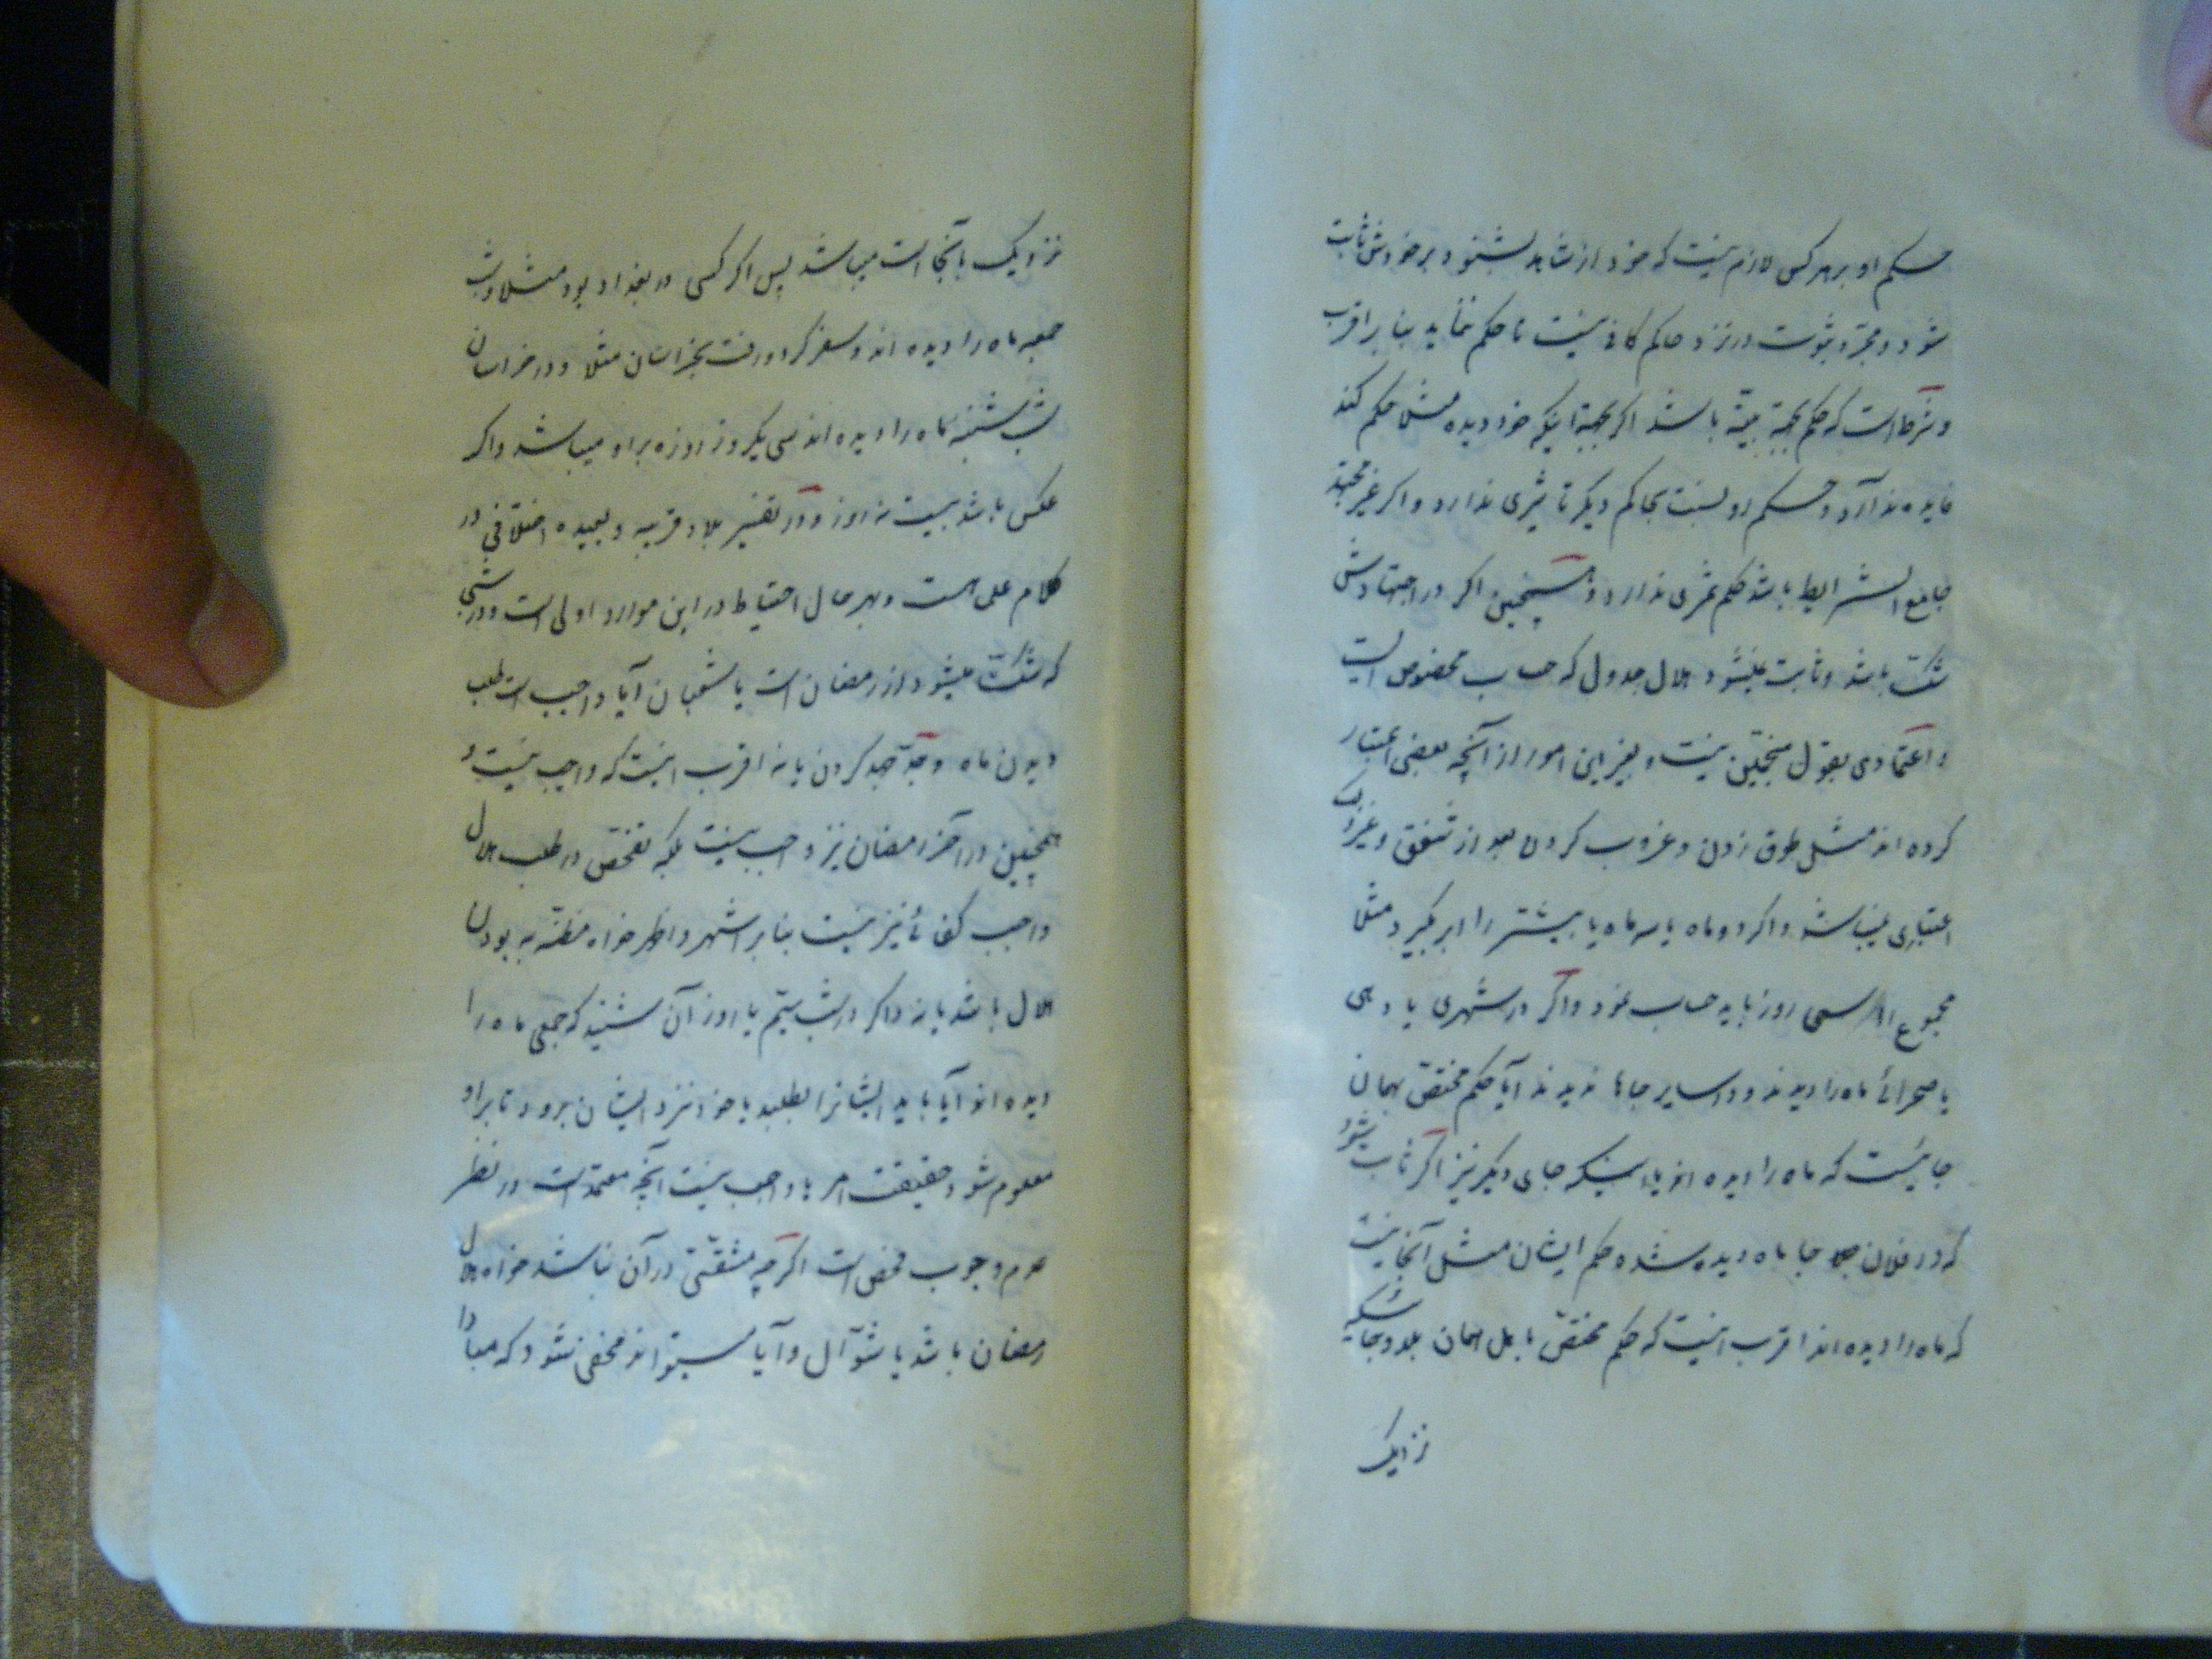 حکم او بر هر کس لازم نیست که خود از شاهد بشنود بر خودش ثابت
شود و مجرد ثبوت در نزد حاکم کافی نیست تا حکم نماید بنا بر اقرب
و شرط است که حکم بجهة بینه باشد اگر بجهة اینکه خود دیده مثلا حکم کند
فایده ندارد و حکم او نسبت بحاکم دیگر تاثیری ندارد و اگر غیر مجتهد
جامع الشرایط باشد حکم ثمری ندارد و همچنین اگر در اجتهادش
شک باشد و ثابت نمیشود هلال بجدول که حساب مخصوص است
و اعتمادی بقول منجمین نیست و بغیر این امور از آنچه بعضی اعتبار
کرده اند مثل طوق زدن و غروب کردن بعد از شفق و غیر آن
اعتباری نمیباشد و اگر دو ماه یا سه ماه یا بیشتر را ابر بگیرد مثلا
مجموع را سی روز باید حساب نمود و اگر در شهری یا دهی
یا صحرائی ماه را دیدند و در سایر جاها ندیدند آیا حکم مختص بهمان
جائیست که ماه را دیده اند یا اینکه جای دیگر نیز اگر ثابت شود
که در فلان جا ماه دیده شده حکم ایشان مثل آنجائیست
که ماه را دیده اند اقرب اینست که حکم مختص باهل همان بلد و بجائیکه
نزدیک
نزدیک بآنجا است میباشد پس اگر کسی در بغداد بود مثلا و شب
جمعه ماه را دیده اند و سفر کرد و رفت بخراسان مثلا و در خراسان
شب شنبه ماه را دیده اند سی یکروز روزه بر او میباشد و اگر
عکس باشد بیست نه روز و در تفسیر بلاد قریبه و بعیده اختلافی در
کلام علی هست و بهر حال احتیاط در این موارد اولی است و در شبی
که شک میشود از رمضان است یا شعبان آیا واجب است طلب
دیدن ماه و جد جهد کردن یا نه اقرب اینست که واجب نیست و
همچنین در آخر رمضان نیز واجب نیست بلکه تفحص در طلب هلال
واجب کفائی نیز نیست بنا بر اشهر و اظهر خواه مظنه به بودن
هلال باشد یا نه و اگر در شب سیم یا روز آن شنید که جمعی ماه را
دیده اند آیا باید ایشانرا بطلبد یا خود نزد ایشان برود تا بر او
معلوم شود حقیقت امر یا واجب نیست آنچه معتمد است در نظر
عدم وجوب فحص است اگر چه مشقتی در آن نباشد خواه هلال
رمضان باشد یا شوال و آیا میتواند مخفی شود که مبادا